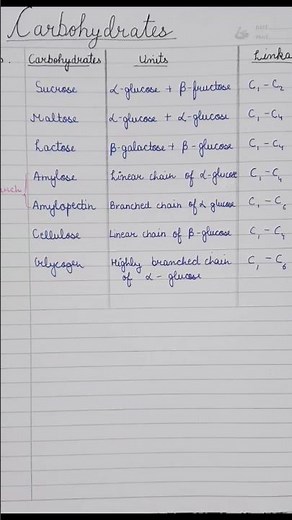 Carbohydrates
Carbohydrates Units Linka
Sucrose α-glucose + β-fructose C₁-C₂
Maltose α-glucose + α-glucose C₁-C₄
Lactose β-galactose + β-glucose C₁-C₄
Amylose Linear chain of α-glucose C₁-C₄
Amylopectin Branched chain of α glucose C₁-C₆
Cellulose Linear chain of β-glucose C₁-C₄
Glycogen Highly branched chain C₁-C₆
of α-glucose